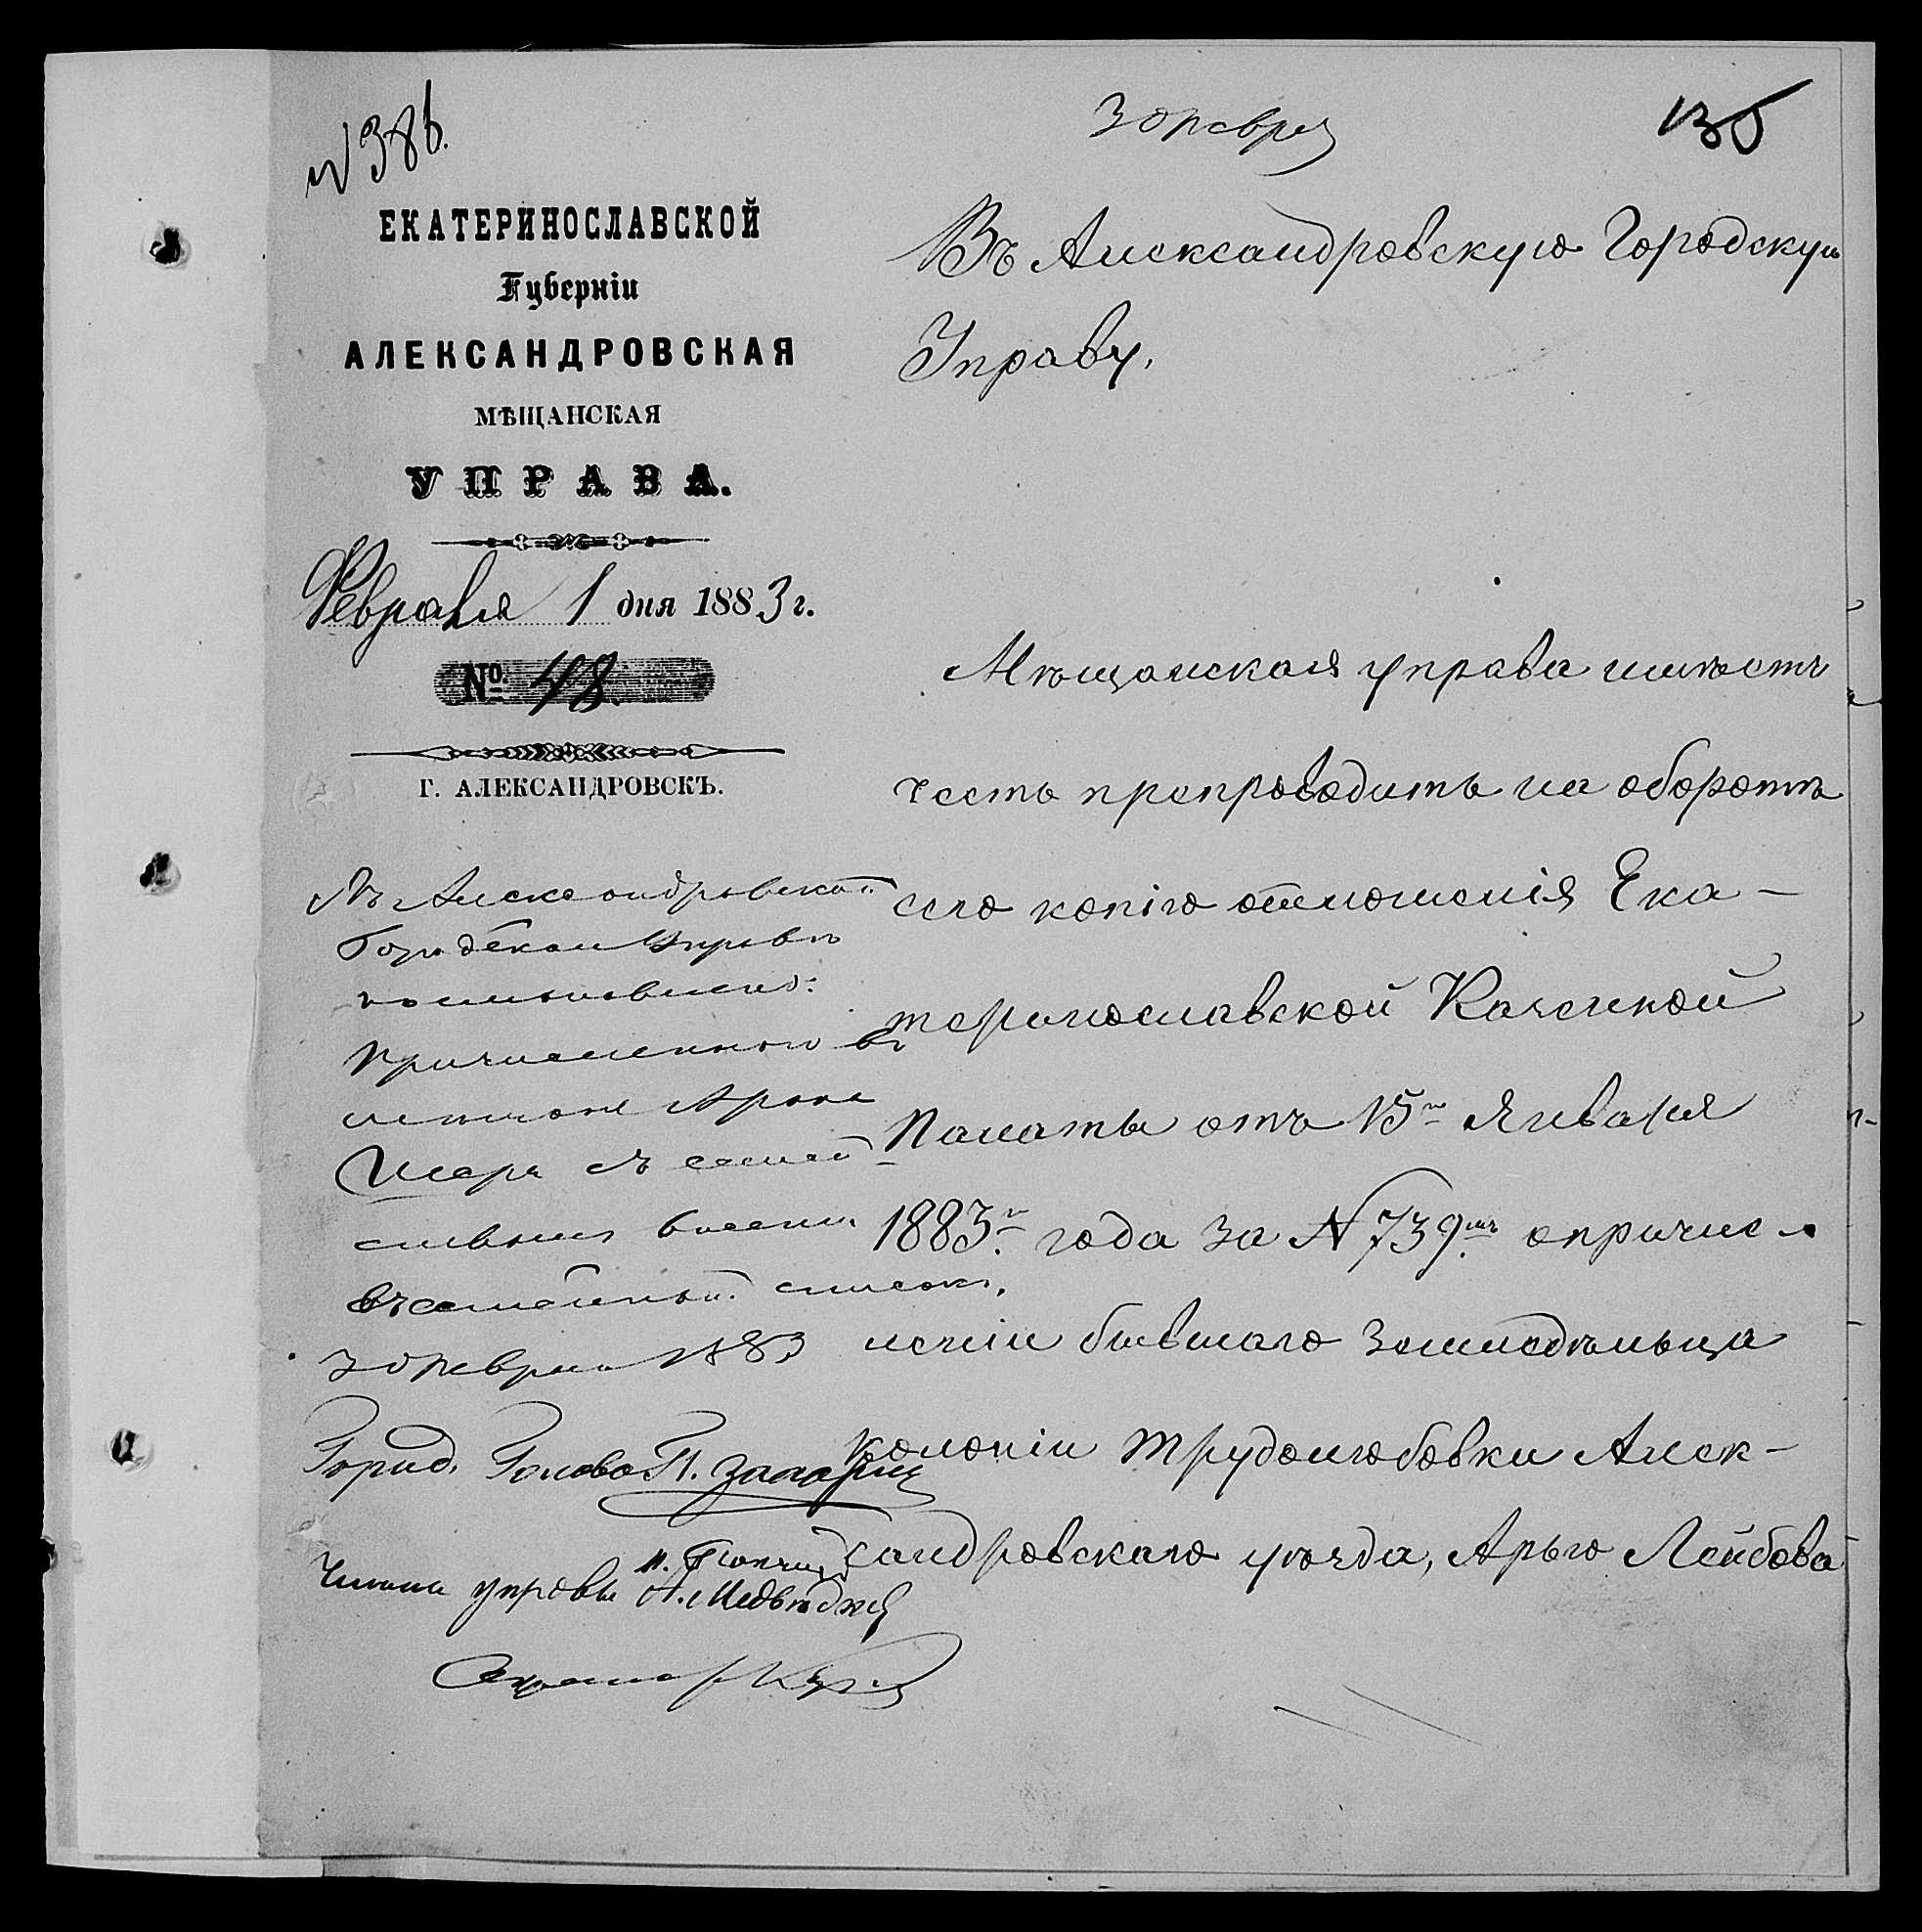 № 386.
3 февра
135
ЕКАТЕРИНОСЛАВСКОЙ
Губерніи
АЛЕКСАНДРОВСКАЯ
МѢЩАНСКАЯ
УПРАВА.
Февраля 1 дня 1883 г.
№ 48.
Г. АЛЕКСАНДРОВСКЪ.
Въ Александровскую Городскую
Управу.
Мѣщанская управа имѣетъ
честь препроводить на оборотѣ
сего копію отношенія Ека-
теринославской Казенной
Палаты отъ 15го Января
1883г. года за N 739мъ о причис-
леніи бывшаго земледѣльца
колоніи Трудолюбовки Алек-
сандровскаго уѣзда, Арью Лейбова
Въ Александровской
Городской Управѣ
Причисленного въ
съ семей
внести
въ семейный списокъ.
3 февраля 1883
Город. Голова П. Захарин
Члены управы
А. Медведкой